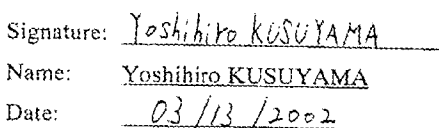 Signature: Yoshihiro KUSUYAMA
Name: Yoshihiro KUSUYAMA
Date: 03/13/2002